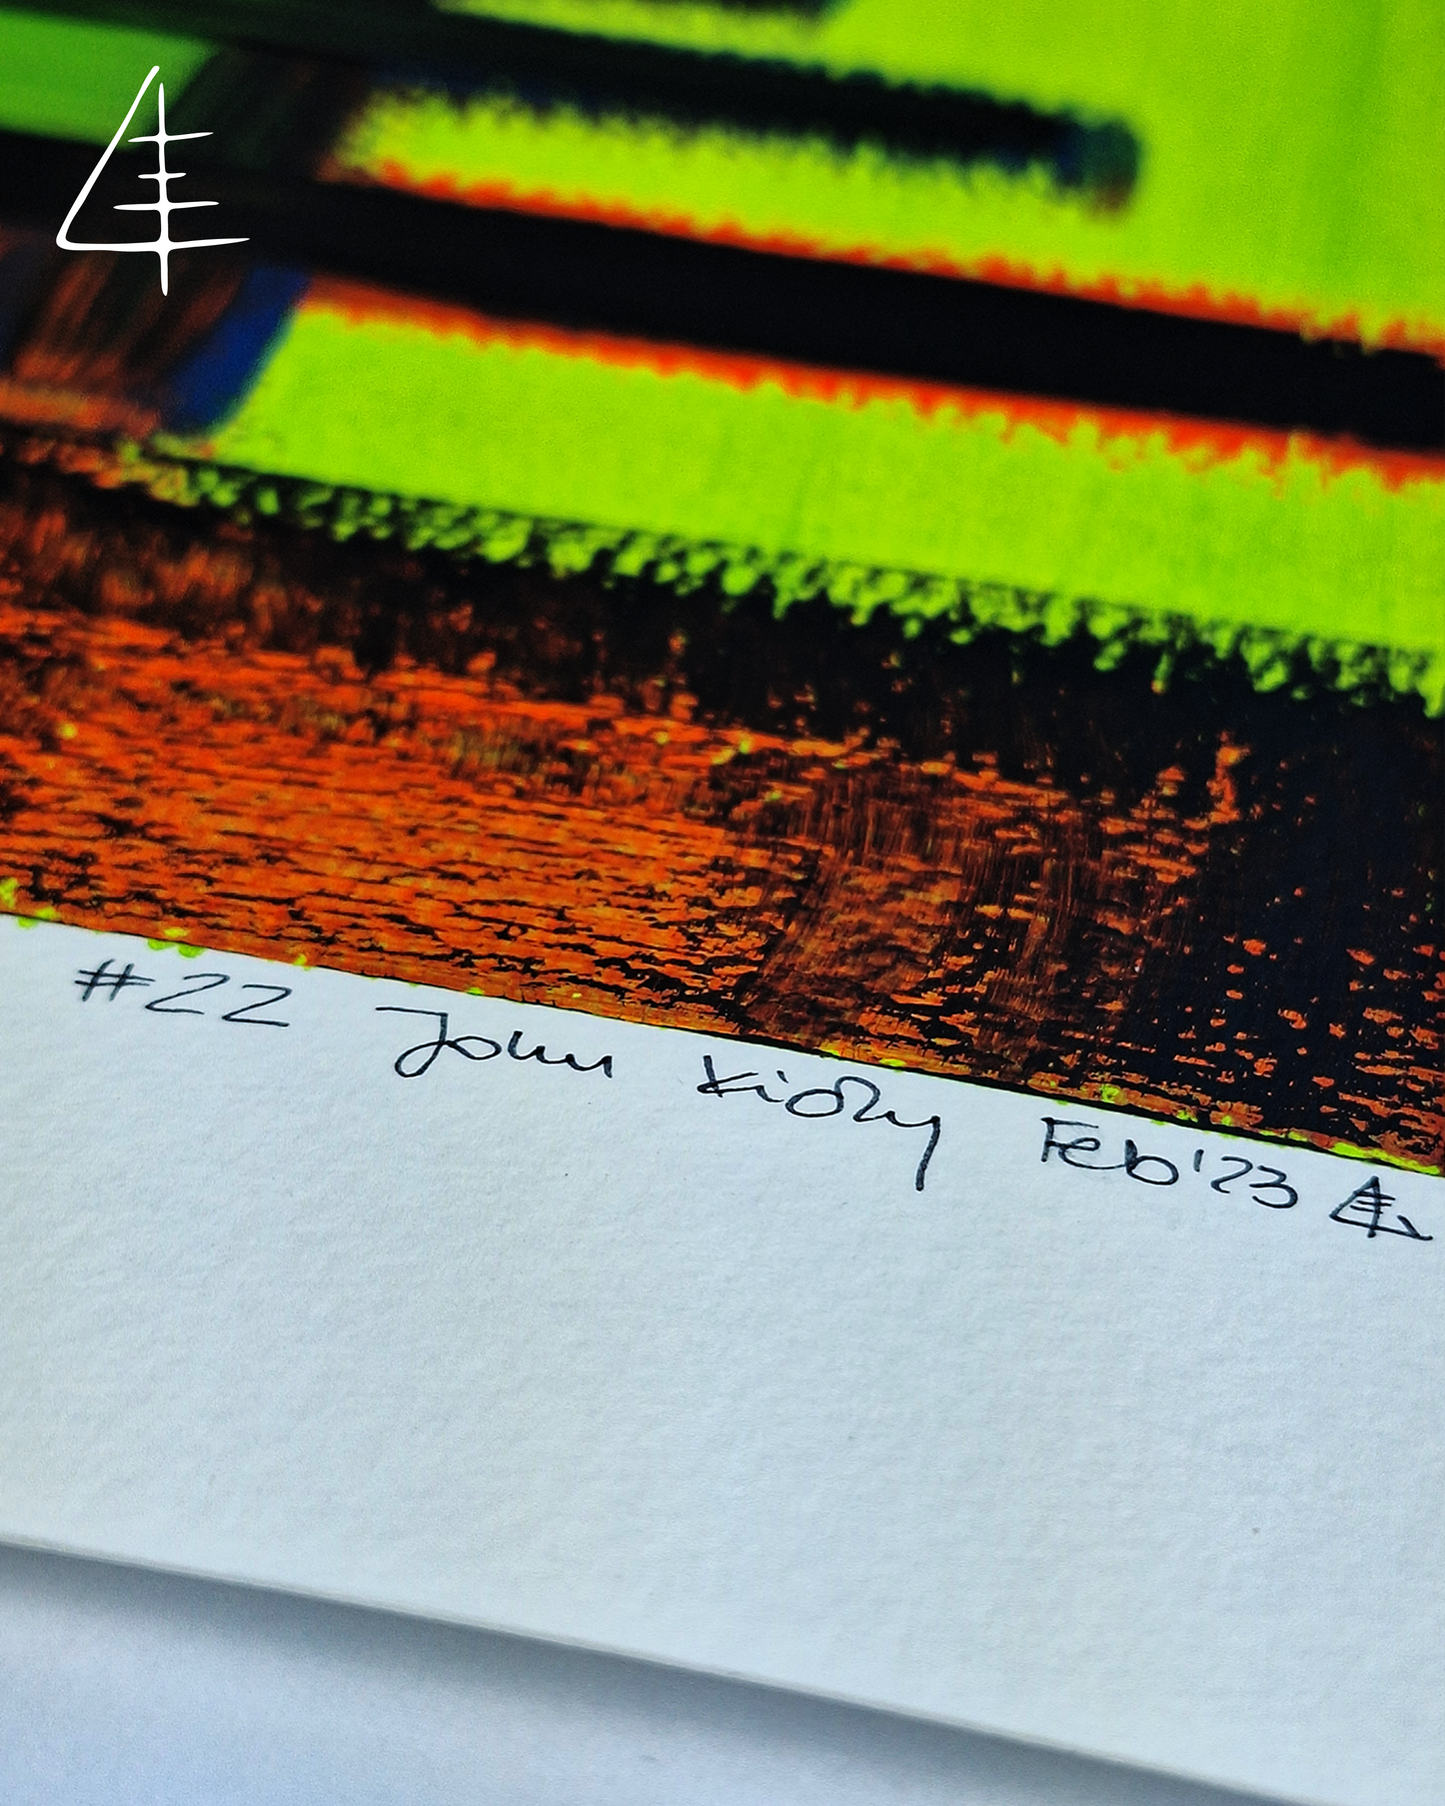 #22 John Kirby Feb'23